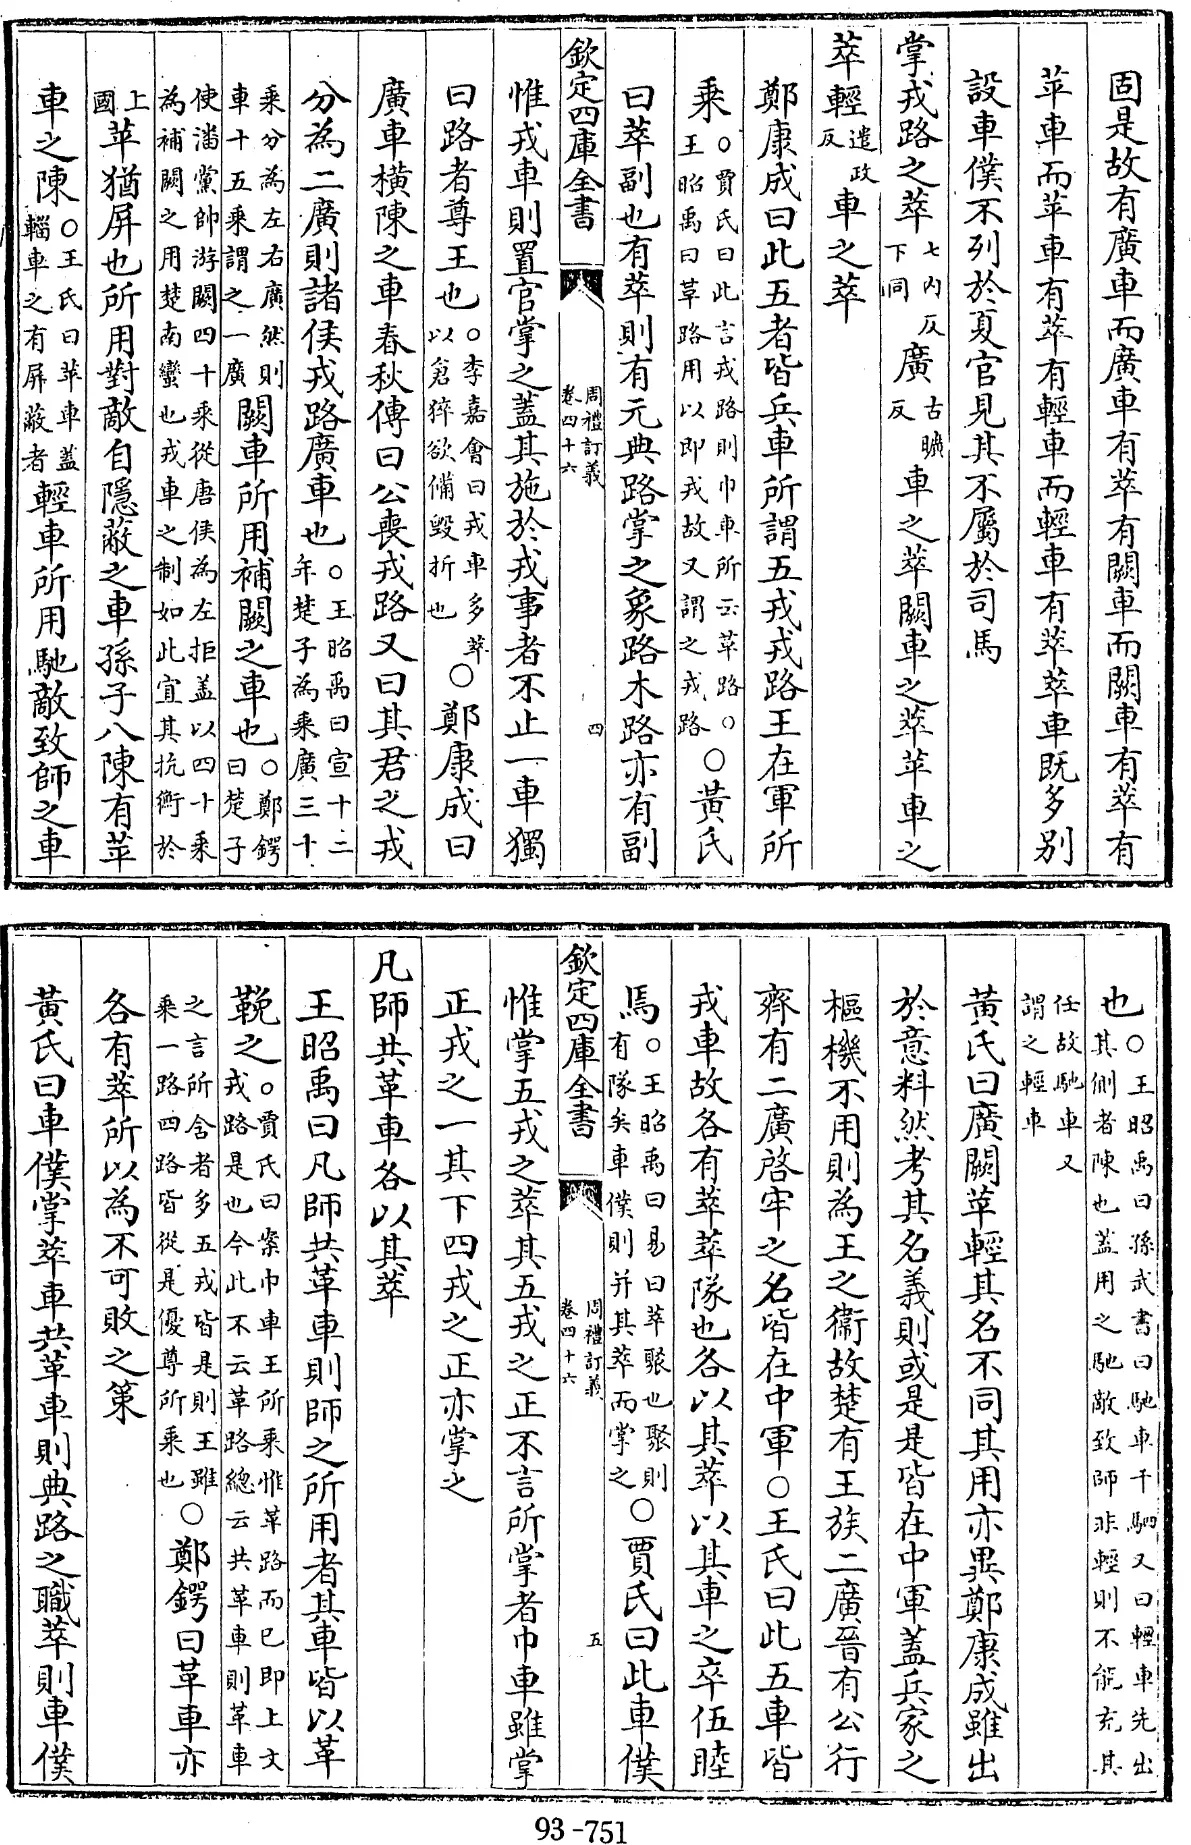 固是故有廣車而廣車有萃有闕車而闕車有萃有
苹車而苹車有萃有輕車而輕車有萃萃車既多別
設車僕不列於夏官見其不屬於司馬
掌戎路之萃七内反下同廣古曠反車之萃闕車之萃苹車之
萃輕遣政反車之萃
鄭康成曰此五者皆兵車所謂五戎戎路王在軍所
乘○賈氏曰此言戎路則巾車所云革路○王昭禹曰革路用以即戎故又謂之戎路○黃氏
曰萃副也有萃則有元典路掌之象路木路亦有副
欽定四庫全書
周禮訂義
卷四十六
四
惟戎車則置官掌之蓋其施於戎事者不止一車獨
曰路者尊王也○李嘉會曰戎車多萃以倉猝欲備毀折也○鄭康成曰
廣車橫陳之車春秋傳曰公喪戎路又曰其君之戎
分為二廣則諸侯戎路廣車也○王昭禹曰宣十二年楚子為乘廣三十
乘分為左右廣然則車十五乘謂之一廣闕車所用補闕之車也○鄭鍔曰楚子
使潘黨帥游闕四十乘從唐侯為左拒蓋以四十乘為補闕之用楚南蠻也戎車之制如此宜其抗衡於
上國苹猶屏也所用對敵自隱蔽之車孫子八陳有苹
車之陳○王氏曰苹車蓋輜車之有屏蔽者輕車所用馳敵致師之車
也○王昭禹曰孫武書曰馳車千駟又曰輕車先出其側者陳也蓋用之馳敵致師非輕則不能充其
任故馳車又謂之輕車
黃氏曰廣闕苹輕其名不同其用亦異鄭康成雖出
於意料然考其名義則或是是皆在中軍蓋兵家之
樞機不用則為王之衛故楚有王族二廣晉有公行
齊有二廣啓牢之名皆在中軍○王氏曰此五車皆
戎車故各有萃萃隊也各以其萃以其車之卒伍睦
焉○王昭禹曰易曰萃聚也聚則有隊矣車僕則并其萃而掌之○賈氏曰此車僕
欽定四庫全書
周禮訂義
卷四十六
五
惟掌五戎之萃其五戎之正不言所掌者巾車雖掌
正戎之一其下四戎之正亦掌之
凡師共革車各以其萃
王昭禹曰凡師共革車則師之所用者其車皆以革
鞔之○賈氏曰案巾車王所乘惟革路而已即上文戎路是也今此不云革路總云共革車則革車
之言所含者多五戎皆是則王雖乘一路四路皆從是優尊所乘也○鄭鍔曰革車亦
各有萃所以為不可敗之策
黃氏曰車僕掌萃車共革車則典路之職萃則車僕
93-751